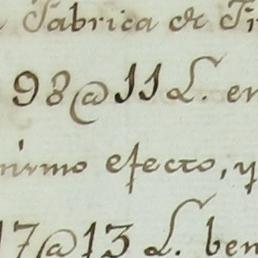 Fabrica de
98@11 L. en
mismo efecto, y
17@13 L. ben